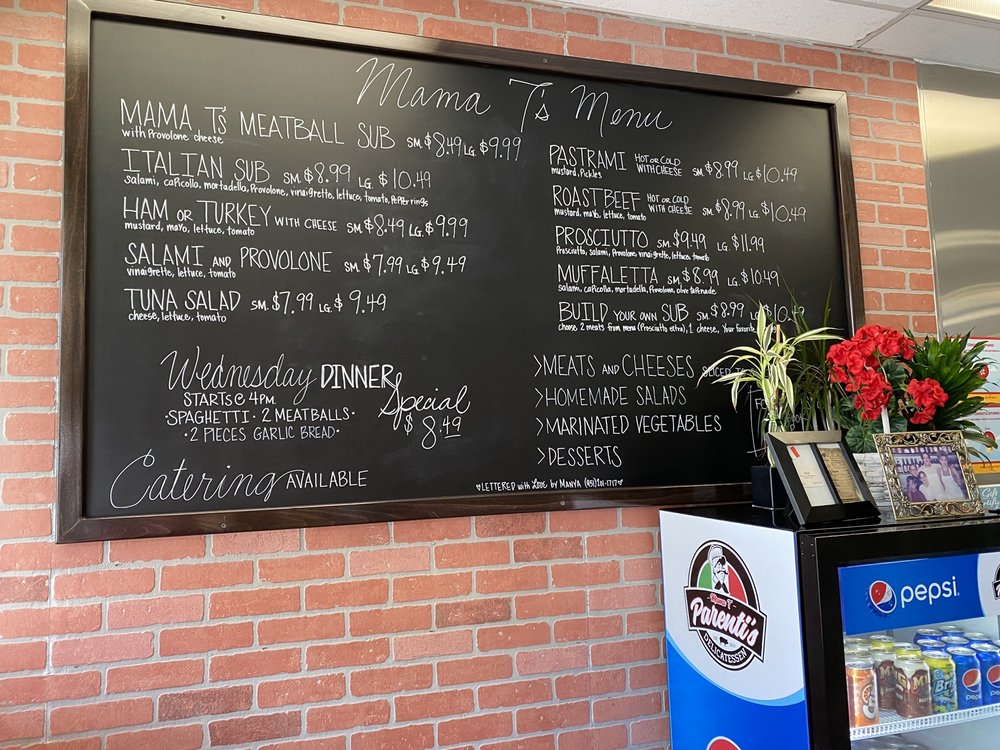 Mama T's Menu
MAMA T's MEATBALL SUB SM. $8.49 LG. $9.99
with Provolone cheese
ITALIAN SUB SM. $8.99 LG. $10.49
salami, capicolla, mortadella, Provolone, vinaigrette, lettuce, tomato, Pepper rings
HAM OR TURKEY WITH CHEESE SM. $8.49 LG. $9.99
mustard, mayo, lettuce, tomato
SALAMI AND PROVOLONE SM. $7.99 LG. $9.49
vinaigrette, lettuce, tomato
TUNA SALAD SM. $7.99 LG. $9.49
cheese, lettuce, tomato
PASTRAMI HOT OR COLD WITH CHEESE SM. $8.99 LG. $10.49
mustard, Pickles
ROAST BEEF HOT OR COLD WITH CHEESE SM. $8.99 LG. $10.49
mustard, mayo, lettuce, tomato
PROSCIUTTO SM. $9.49 LG. $11.99
Prosciutto, salami, Provolone, vinaigrette, lettuce, tomato
MUFFALETTA SM. $8.99 LG. $10.49
salami, capicolla, mortadella, Provolone, olive tapenade
BUILD YOUR OWN SUB SM. $8.99 LG. $10.49
choose 2 meats from menu (Prosciutto extra), 1 cheese, Your favorite
Wednesday DINNER Special
STARTS @ 4PM.
• SPAGHETTI • 2 MEATBALLS •
• 2 PIECES GARLIC BREAD •
$8.49
Catering AVAILABLE
>MEATS AND CHEESES SLICED TO
>HOMEMADE SALADS
>MARINATED VEGETABLES
>DESSERTS
♥LETTERED with Love by MANYA (951)201-1717♥
Mama T
Parenti's
DELICATESSEN
pepsi